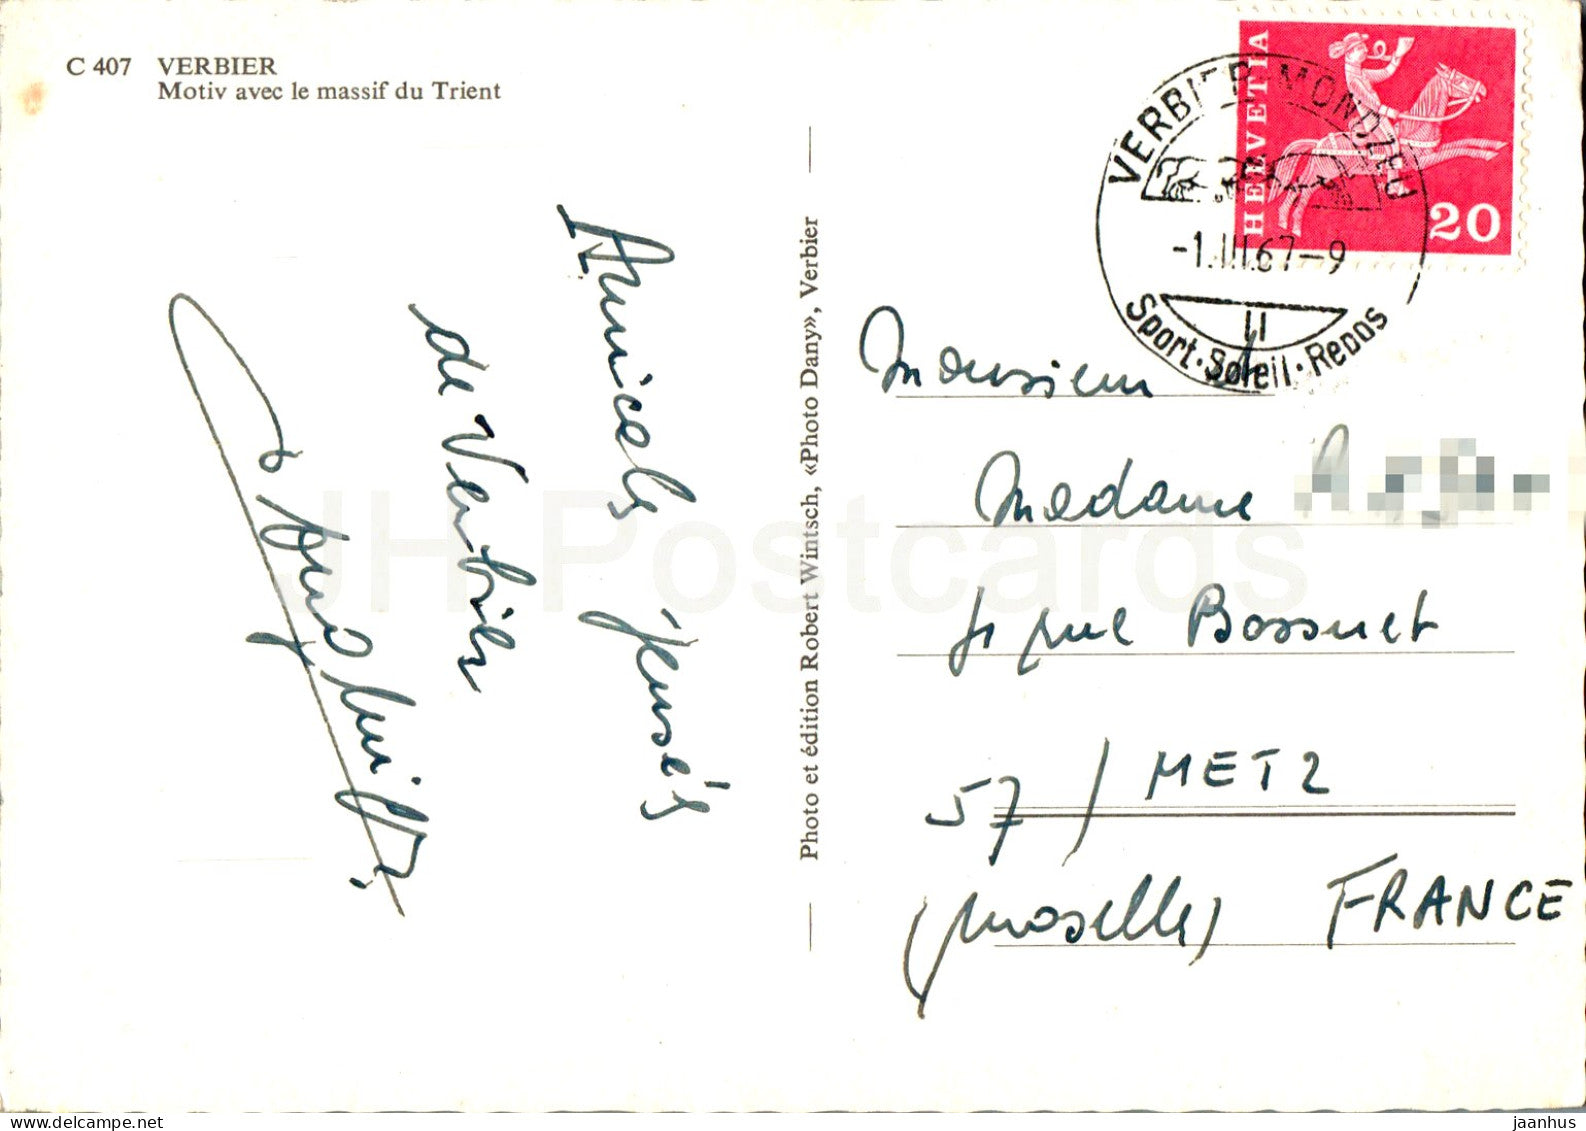 C 407 VERBIER
Motiv avec le massif du Trient
HELVETIA
20
VERBIER-MONDZEU
-1.III.67-9
Sport·Soleil·Repos
Amicales pensées
de Verbier
Photo et édition Robert Wintsch, «Photo Dany», Verbier
Monsieur
Madame
rue Bossuet
57/ METZ
(Moselle) FRANCE
JH Postcards
jaanhus